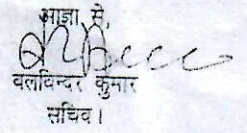 आज्ञा से,
वलविन्दर कुमार
सचिव।